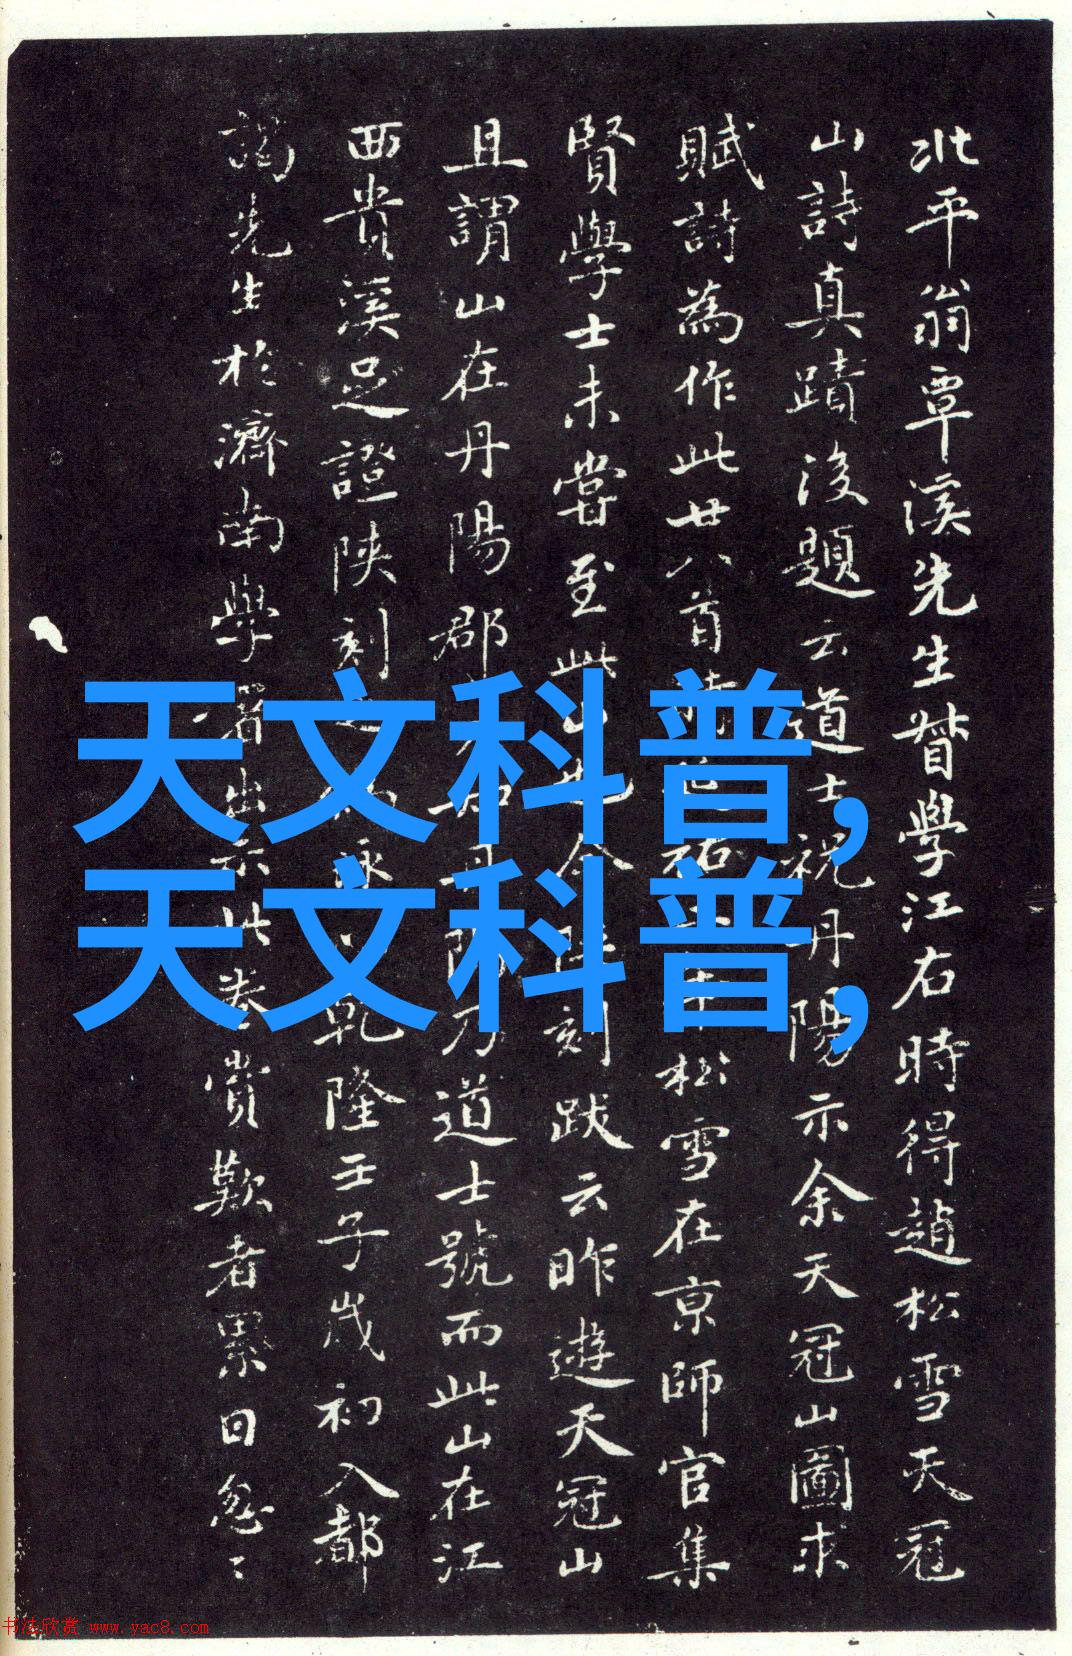 北平翁覃溪先生督學江右時得趙松雪天冠
山詩真蹟後題云道士祝丹陽示余天冠山圖求
賦詩為作此廿八首祐松雪在京師官集
賢學士未嘗至此山也今陝刻跋云昨遊天冠山
且謂山在丹陽郡丹陽乃道士號而此山在江
西貴溪足證陝刻詠乾隆壬子歲初入都
謁先生於濟南學署出示此卷賞歎者累日怱〻
天文科普,
天文科普,
书法欣赏 www.yac8.com